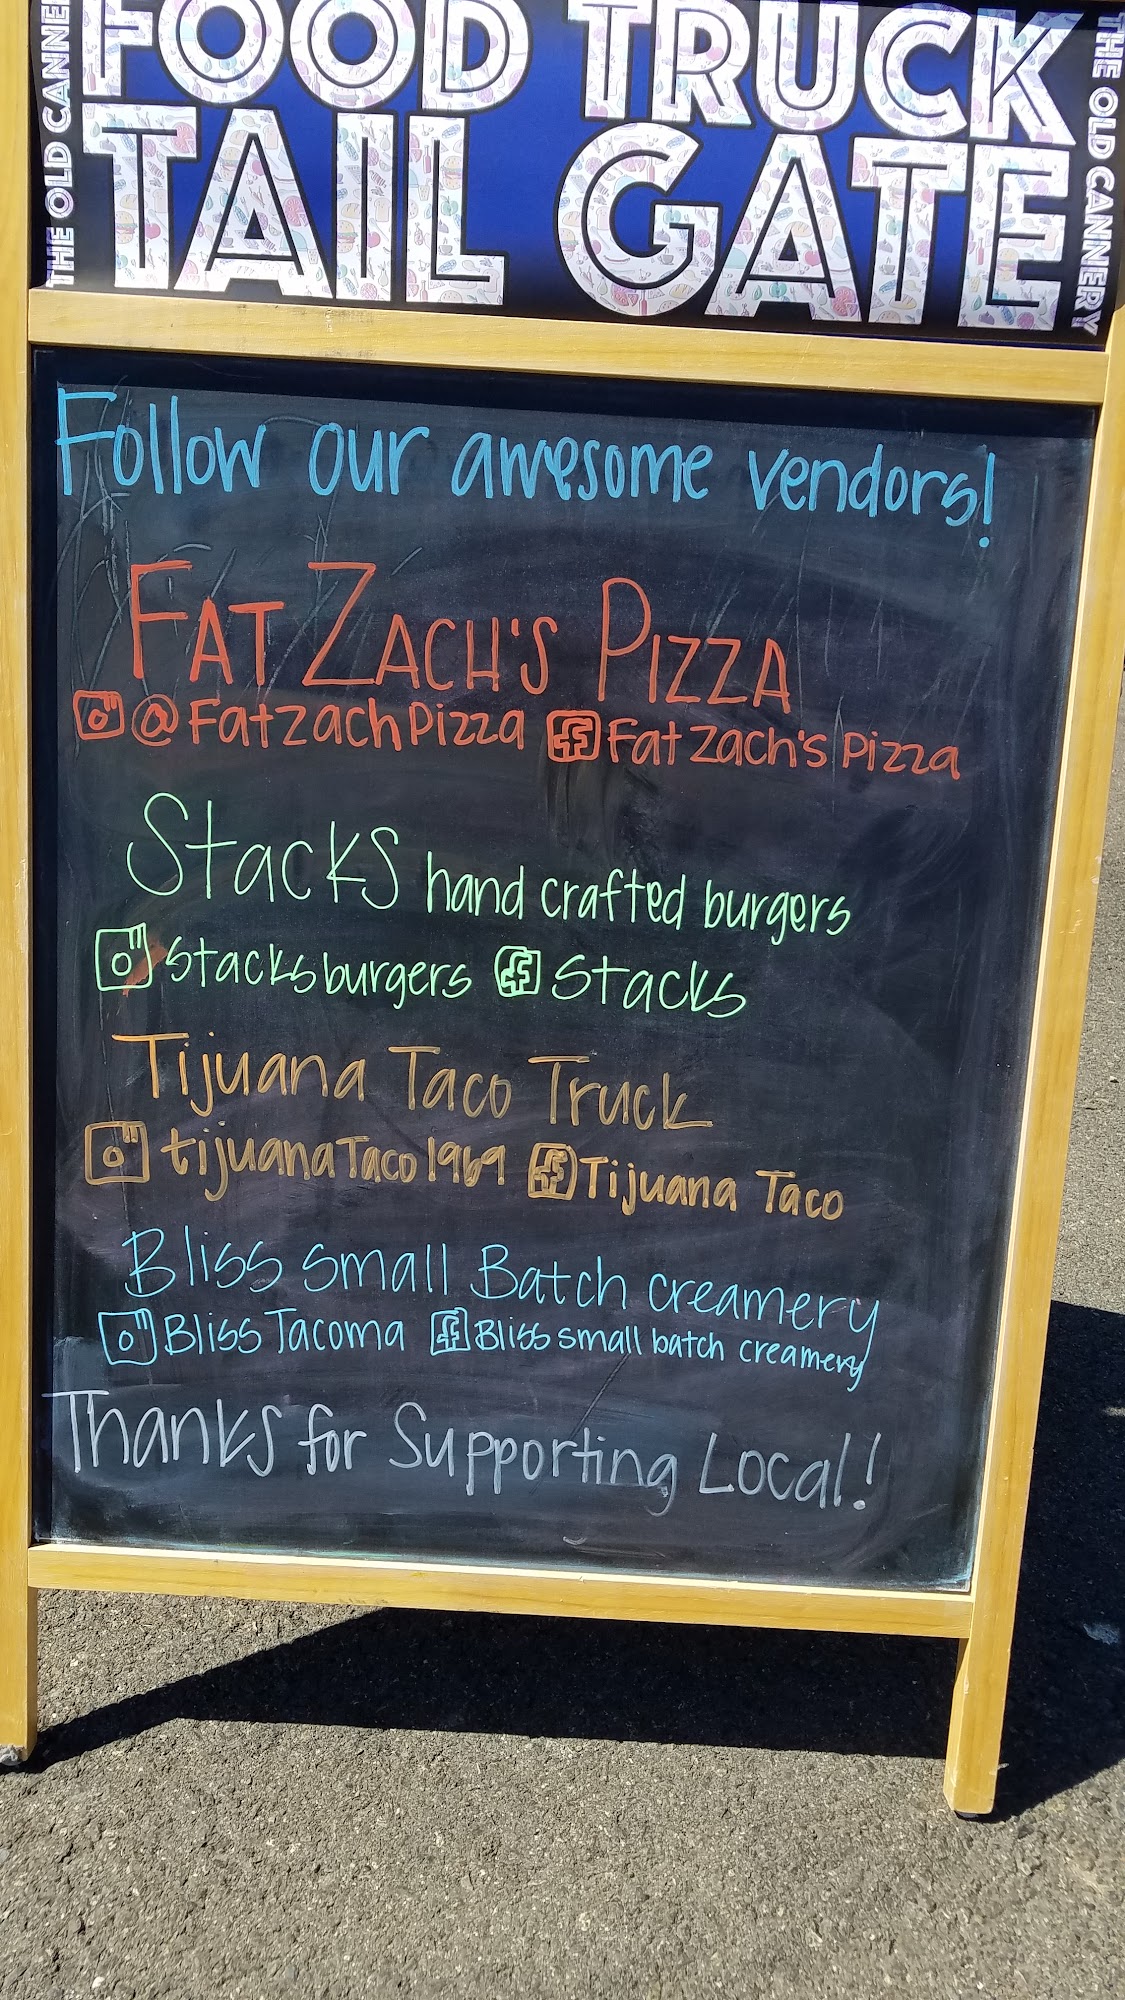 FOOD TRUCK
TAIL GATE
THE OLD CANNE
THE OLD CANNERY
Follow our awesome vendors!
FAT ZACH'S PIZZA
@FatzachPizza Fat Zach's Pizza
Stacks hand crafted burgers
stacksburgers Stacks
Tijuana Taco Truck
tijuanaTaco1969 Tijuana Taco
Bliss small Batch creamery
BlissTacoma Bliss small batch creamery
Thanks for Supporting Local!